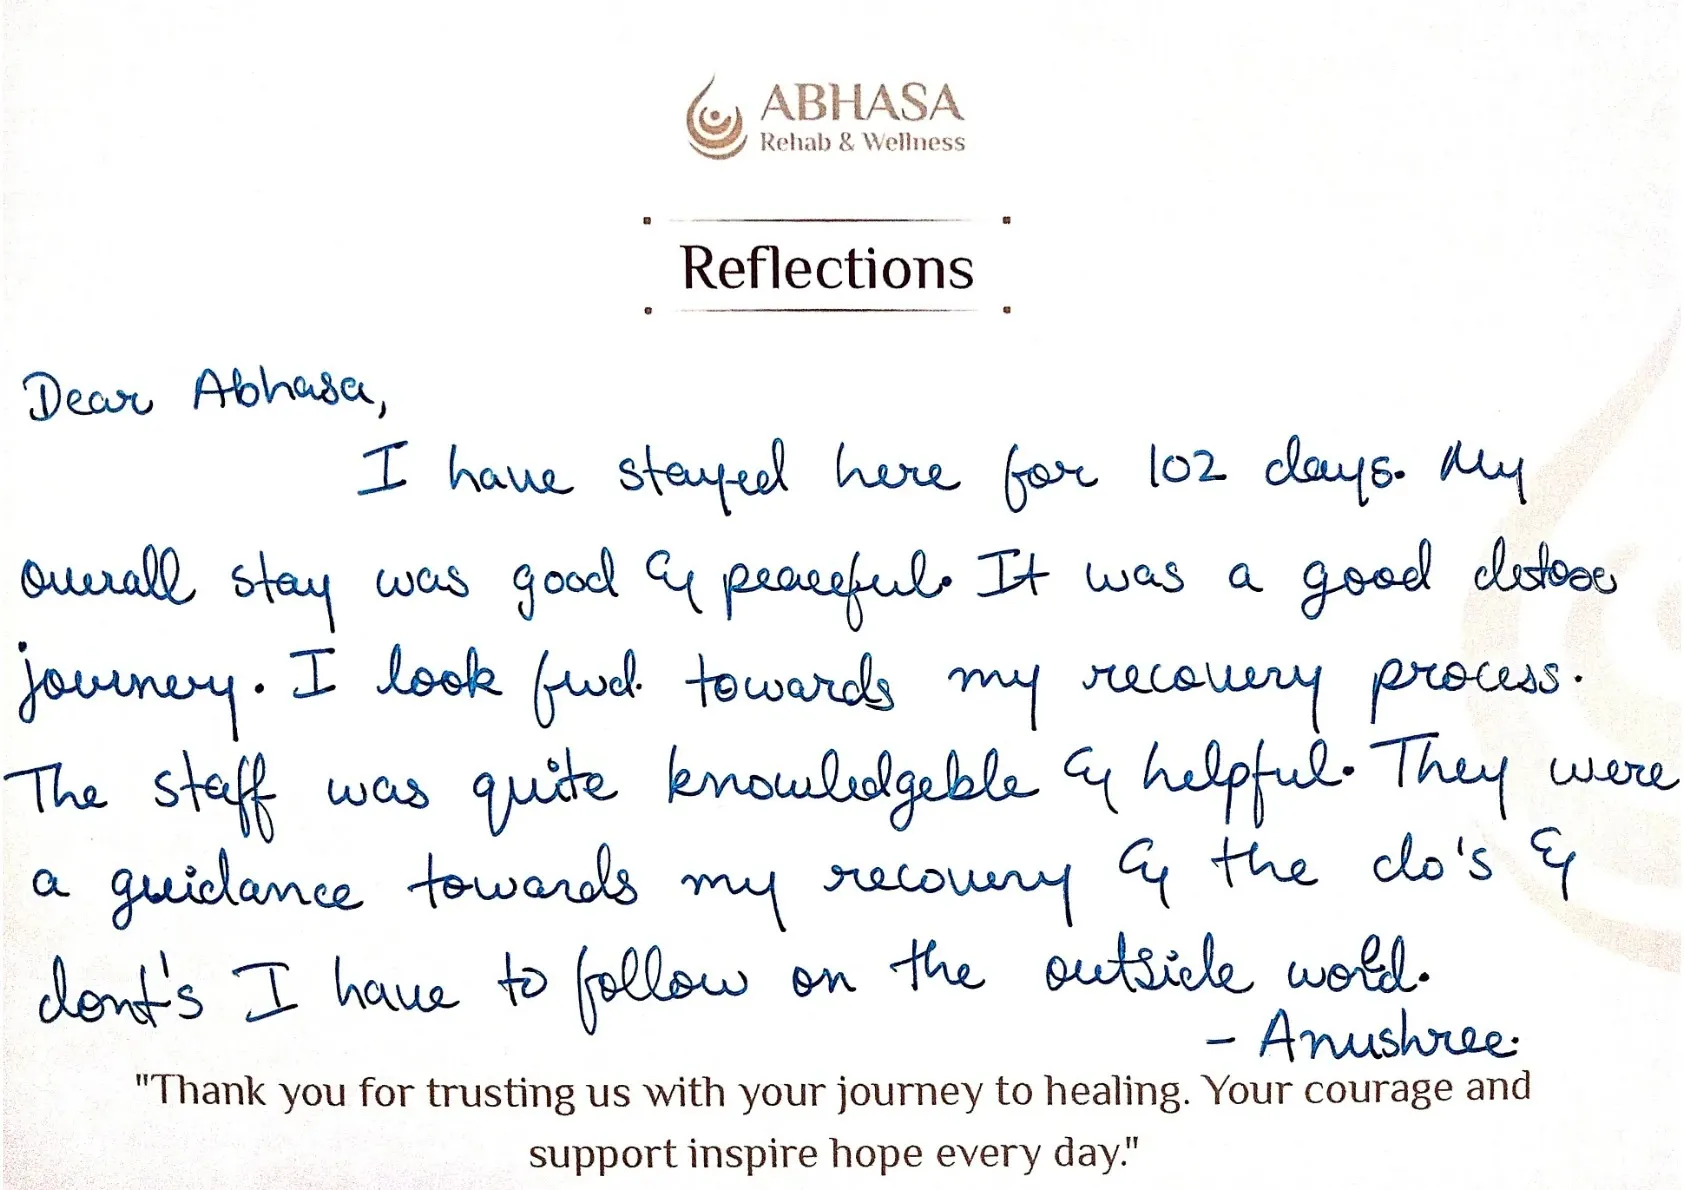 ABHASA
Rehab & Wellness
Reflections
Dear Abhasa,
I have stayed here for 102 days. My
overall stay was good & peaceful. It was a good detox
journey. I look fwd. towards my recovery process.
The staff was quite knowledgeble & helpful. They were
a guidance towards my recovery & the do's &
dont's I have to follow on the outside world.
- Anushree.
"Thank you for trusting us with your journey to healing. Your courage and
support inspire hope every day."